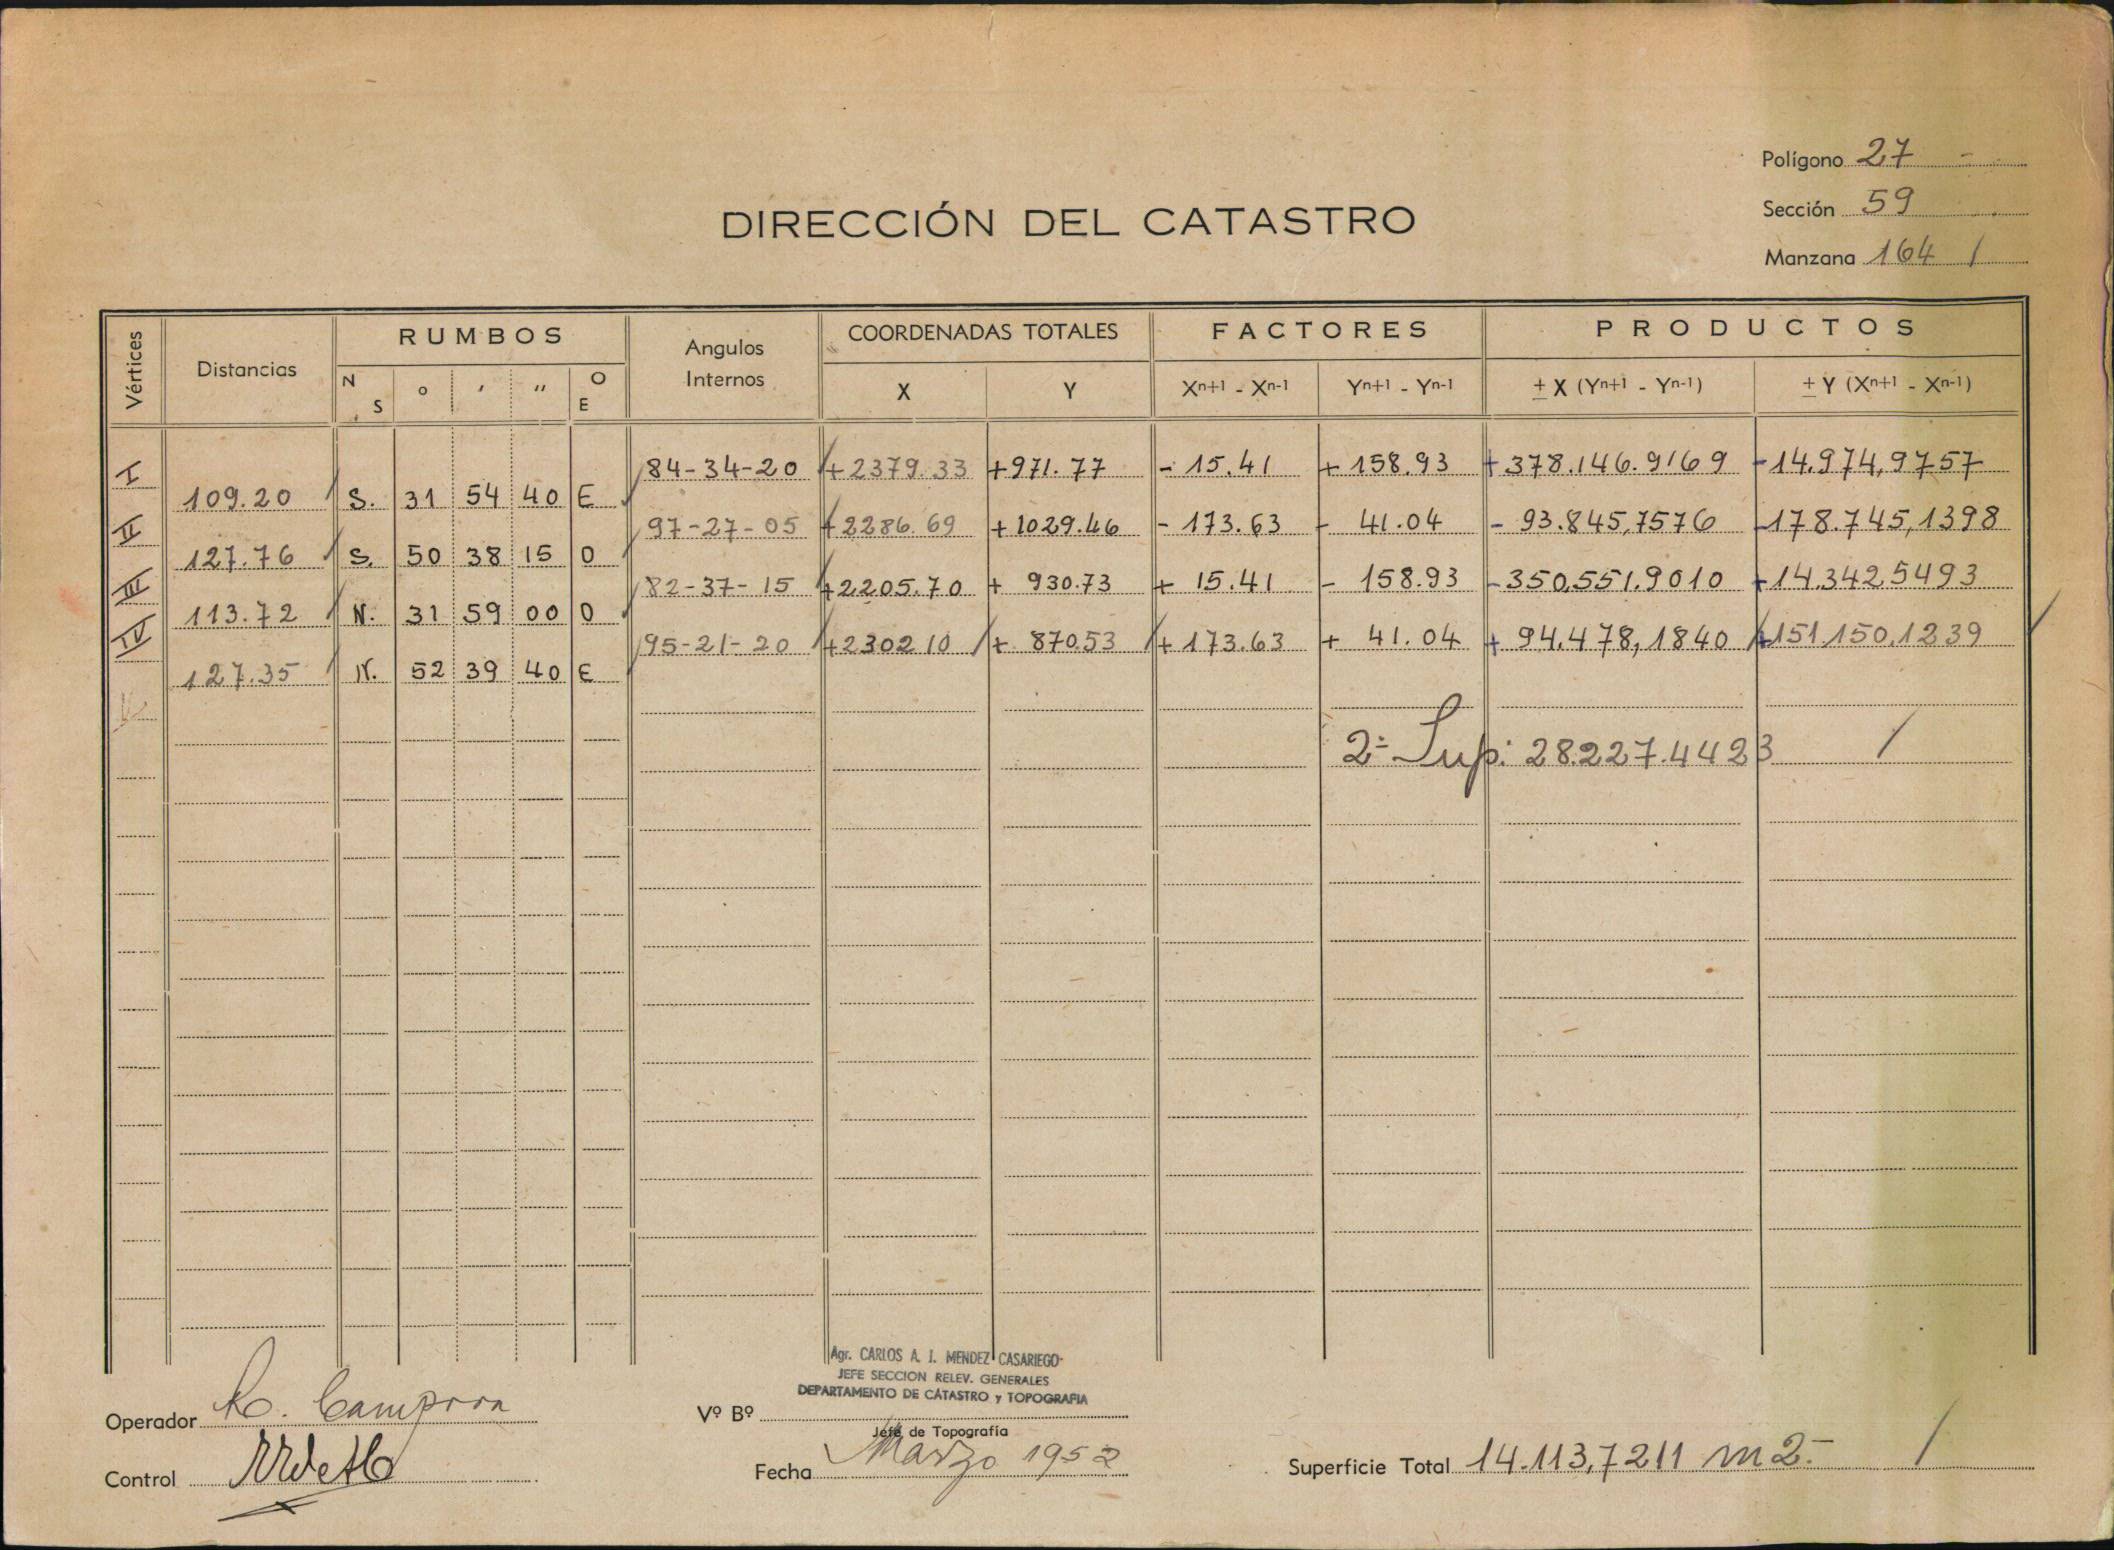 Polígono 27
Sección 59
Manzana 164
DIRECCIÓN DEL CATASTRO
Vértices Distancias RUMBOS Angulos Internos COORDENADAS TOTALES FACTORES PRODUCTOS
N S ° ′ ″ O E X Y Xn+1 - Xn-1 Yn+1 - Yn-1 ± X (Yn+1 - Yn-1) ± Y (Xn+1 - Xn-1)
I 84-34-20 +2379.33 +971.77 - 15.41 + 158.93 +378.146.9169 -14.974,9757
109.20 S. 31 54 40 E
II 97-27-05 +2286.69 +1029.46 - 173.63 - 41.04 - 93.845,7576 -178.745,1398
127.76 S. 50 38 15 O
III 82-37-15 +2205.70 + 930.73 + 15.41 - 158.93 -350.551.9010 +14.342.5493
113.72 N. 31 59 00 O
IV 95-21-20 +2302.10 + 870.53 + 173.63 + 41.04 + 94.478,1840 +151.150,1239
127.35 N. 52 39 40 E
2- Sup: 28.227.4423
Agr. CARLOS A. I. MENDEZ CASARIEGO
JEFE SECCION RELEV. GENERALES
DEPARTAMENTO DE CATASTRO y TOPOGRAFIA
Operador
Vº Bº
Jefe de Topografía
Control
Fecha Marzo 1952
Superficie Total 14.113,7211 m2.-